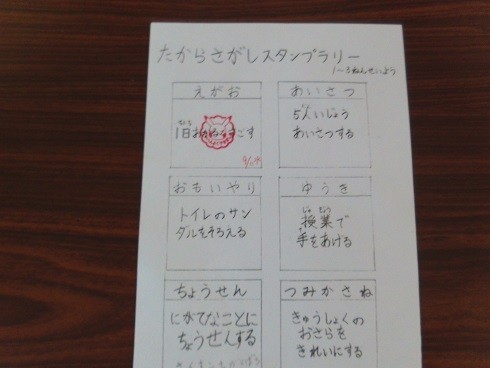 たからさがしスタンプラリー
1~3ねんせいよう
えがお
1日
すごす
あいさつ
5人いじょう
あいさつする
おもいやり
トイレのサン
ダルをそろえる
ゆうき
じゅぎょう
授業で
手をあげる
ちょうせん
にがてなことに
ちょうせんする
つみかさね
きゅうしょくの
おさらを
きれいにする